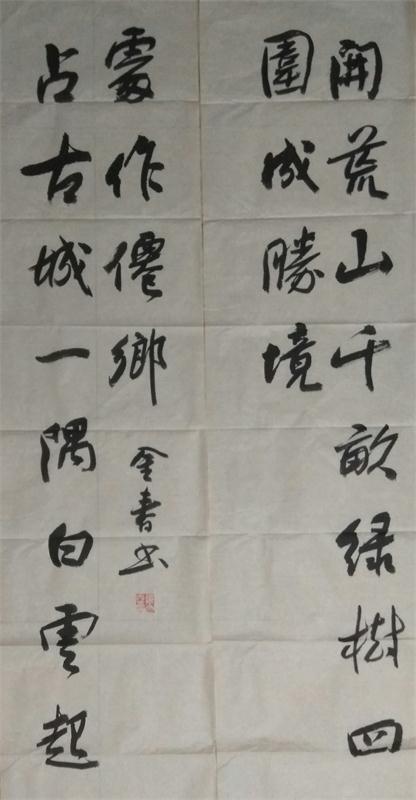 開荒山千畝綠樹四
圍成勝境
占古城一隅白雲起
處作僊鄉